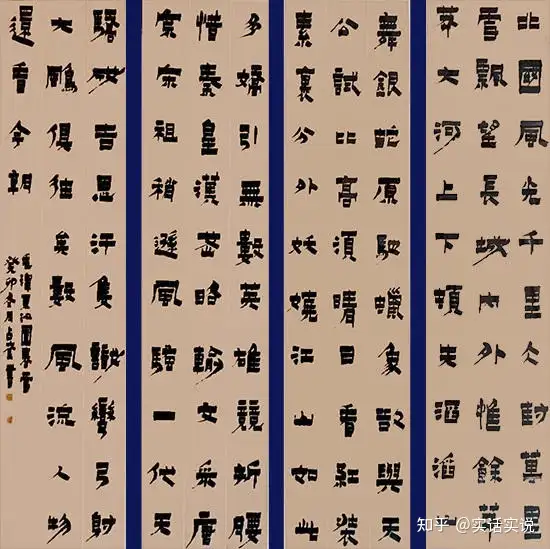 北國風光千里仌封萬里
雪飄望長城內外惟餘莽
莽大河上下頓失滔滔山
舞銀蛇原馳蠟象欲與天
公試比高須晴日看紅裝
素裹分外妖嬈江山如此
多嬌引無數英雄競折腰
惜秦皇漢武略輸文采唐
宗宋祖稍遜風騷一代天
驕成吉思汗隻識彎弓射
大鵰俱往矣數風流人物
還看今朝
毛澤東沁園春雪
癸卯冬月占書
知乎 @实话实说